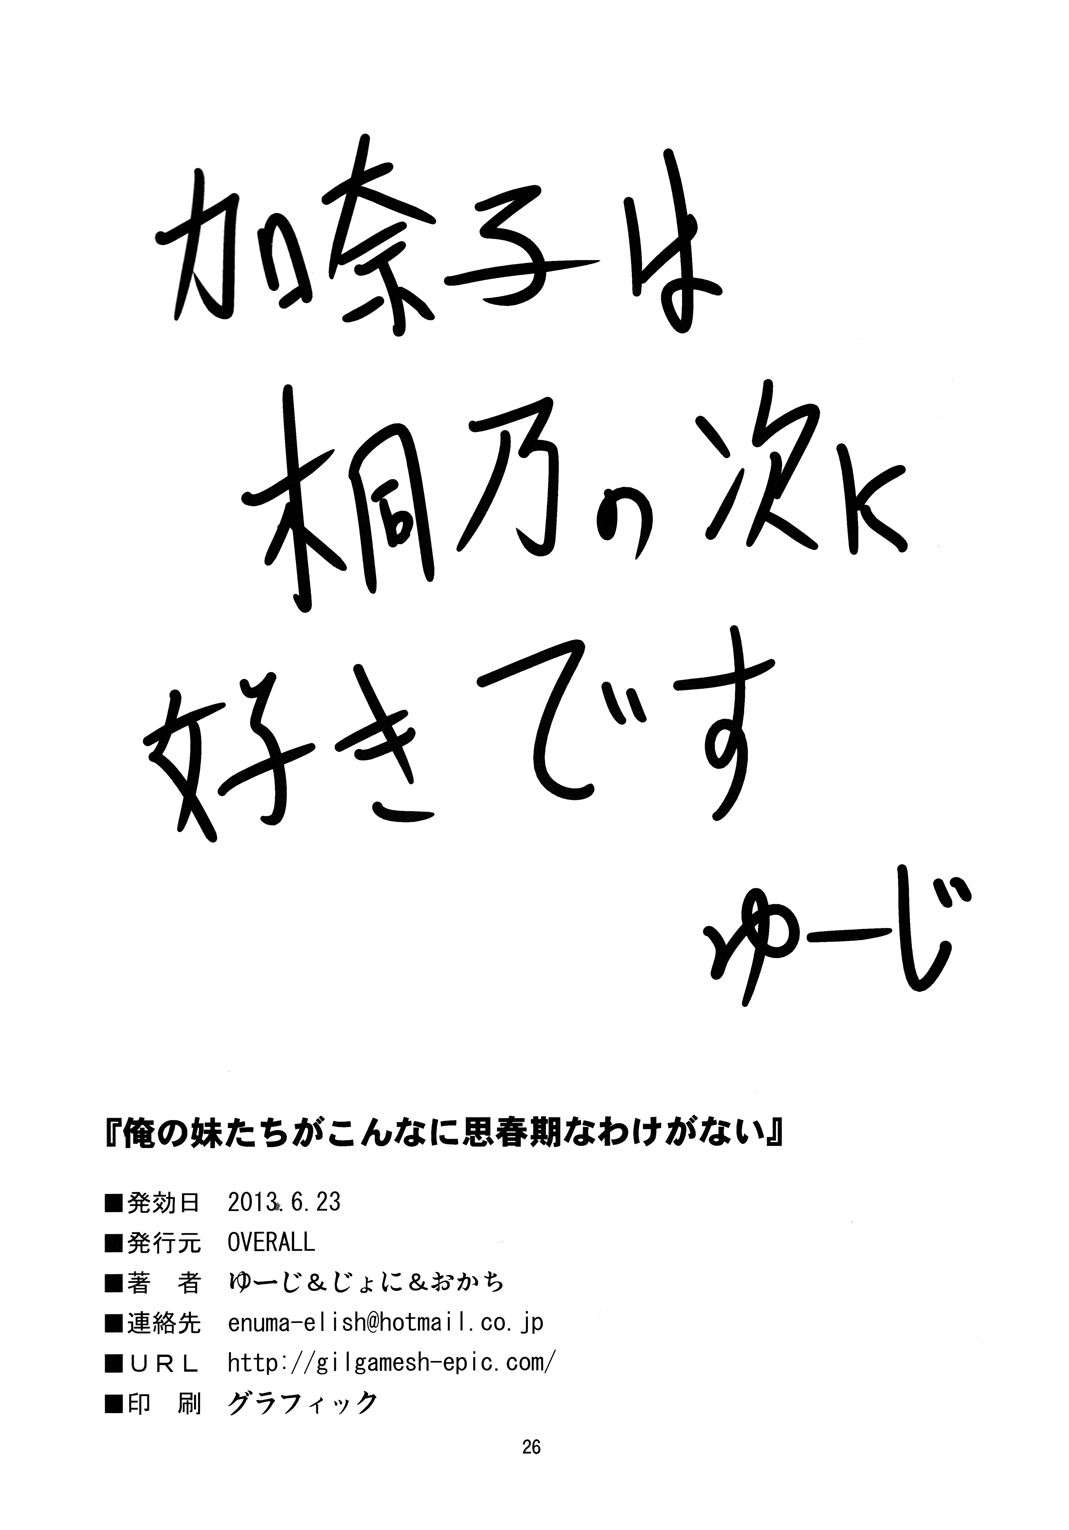 加奈子は
桐乃の次に
好きです
ゆーじ
『俺の妹たちがこんなに思春期なわけがない』
■発効日 2013.6.23
■発行元 OVERALL
■著 者 ゆーじ＆じょに＆おかち
■連絡先 enuma-elish@hotmail.co.jp
■ＵＲＬ http://gilgamesh-epic.com/
■印 刷 グラフィック
26